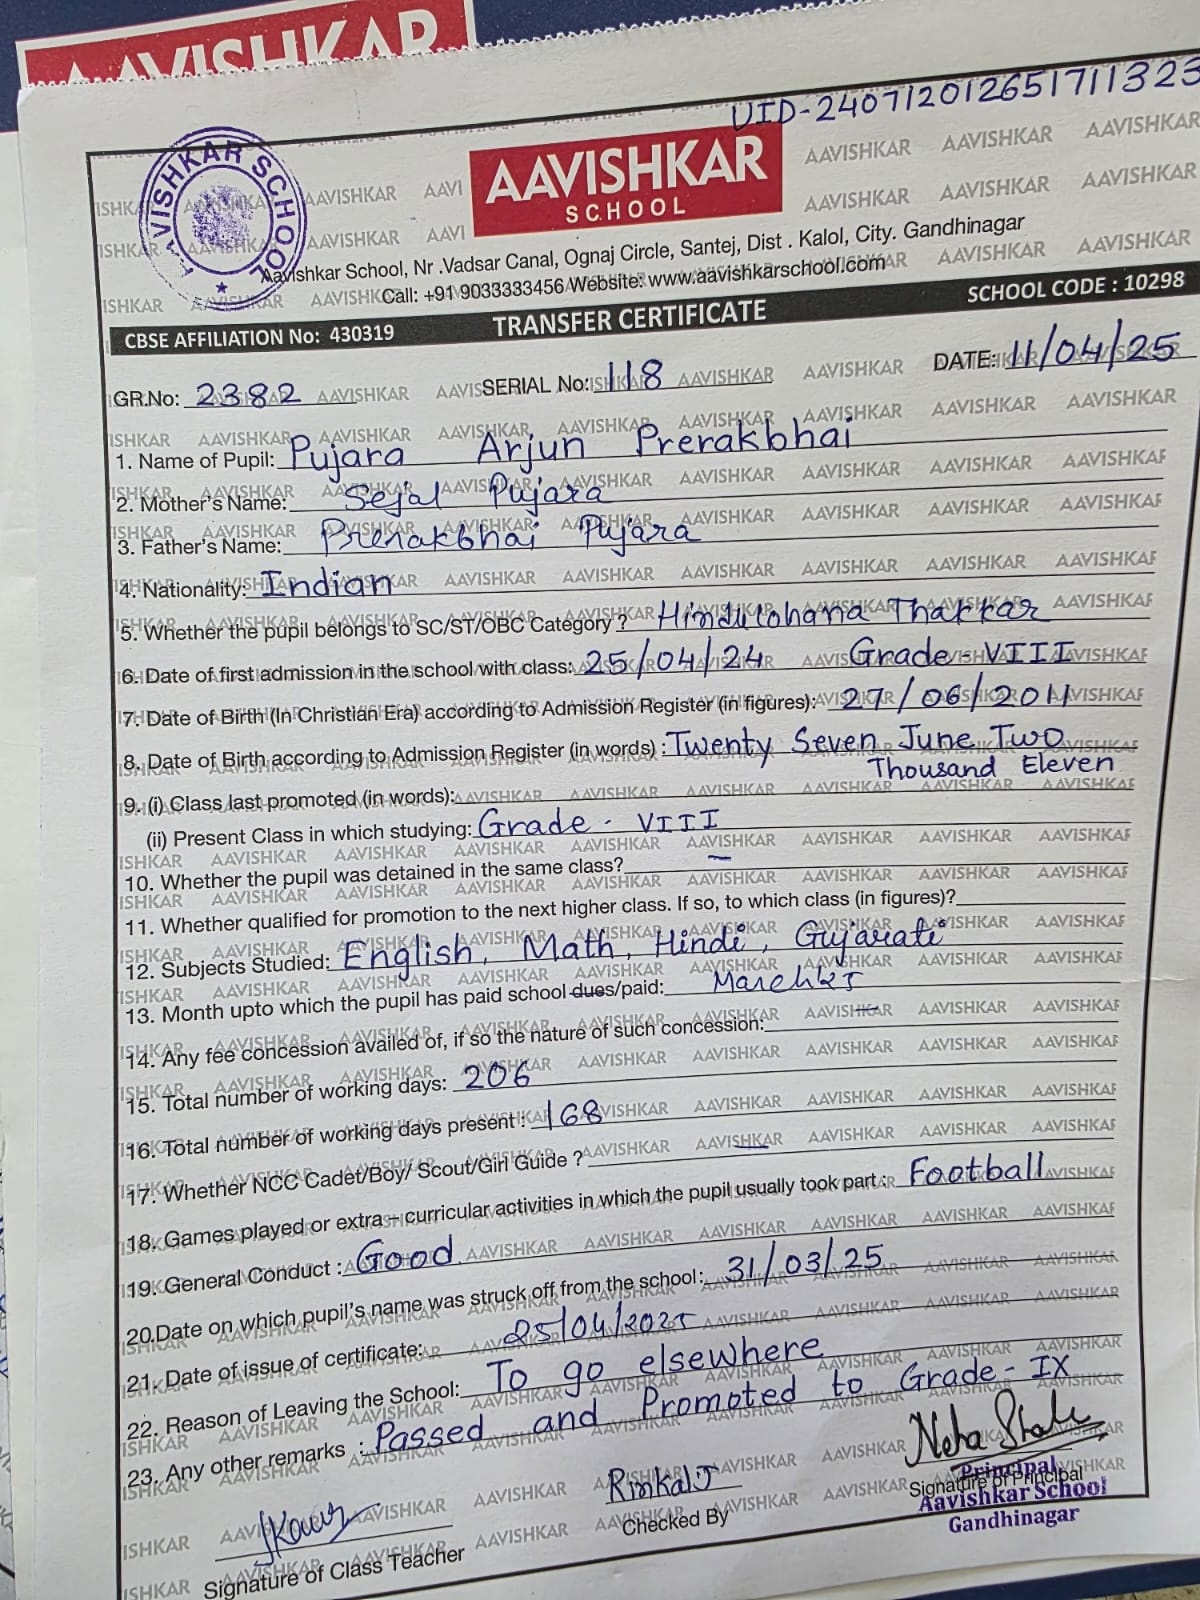 AAVISHKAR
UID-240712012651711323
AAVISHKAR SCHOOL
AAVISHKAR
SCHOOL
Aavishkar School, Nr .Vadsar Canal, Ognaj Circle, Santej, Dist . Kalol, City. Gandhinagar
Call: +91 9033333456 Website: www.aavishkarschool.com
CBSE AFFILIATION No: 430319 TRANSFER CERTIFICATE SCHOOL CODE : 10298
GR.No: 2382 SERIAL No: 118 DATE: 11/04/25
1. Name of Pupil: Pujara Arjun Prerakbhai
2. Mother's Name: Sejal Pujara
3. Father's Name: Prerakbhai Pujara
4. Nationality: Indian
5. Whether the pupil belongs to SC/ST/OBC Category ? Hindu lohana Thakkar
6. Date of first admission in the school with class: 25/04/24 Grade - VIII
7. Date of Birth (In Christian Era) according to Admission Register (in figures): 27/06/2011
8. Date of Birth according to Admission Register (in words) : Twenty Seven June Two
Thousand Eleven
9. (i) Class last promoted (in words):
(ii) Present Class in which studying: Grade - VIII
10. Whether the pupil was detained in the same class? -
11. Whether qualified for promotion to the next higher class. If so, to which class (in figures)?
12. Subjects Studied: English, Math, Hindi, Gujarati
13. Month upto which the pupil has paid school dues/paid: March 25
14. Any fee concession availed of, if so the nature of such concession: -
15. Total number of working days: 206
16. Total number of working days present : 168
17. Whether NCC Cadet/Boy/ Scout/Girl Guide ? -
18. Games played or extra – curricular activities in which the pupil usually took part : Football
19. General Conduct : Good
20.Date on which pupil's name was struck off from the school: 31/03/25
21. Date of issue of certificate: 25/04/2025
22. Reason of Leaving the School: To go elsewhere
23. Any other remarks : Passed and Promoted to Grade - IX
Neha Shah
Rinkal J
Principal
Signature of Principal
Aavishkar School
Gandhinagar
Checked By
Signature of Class Teacher